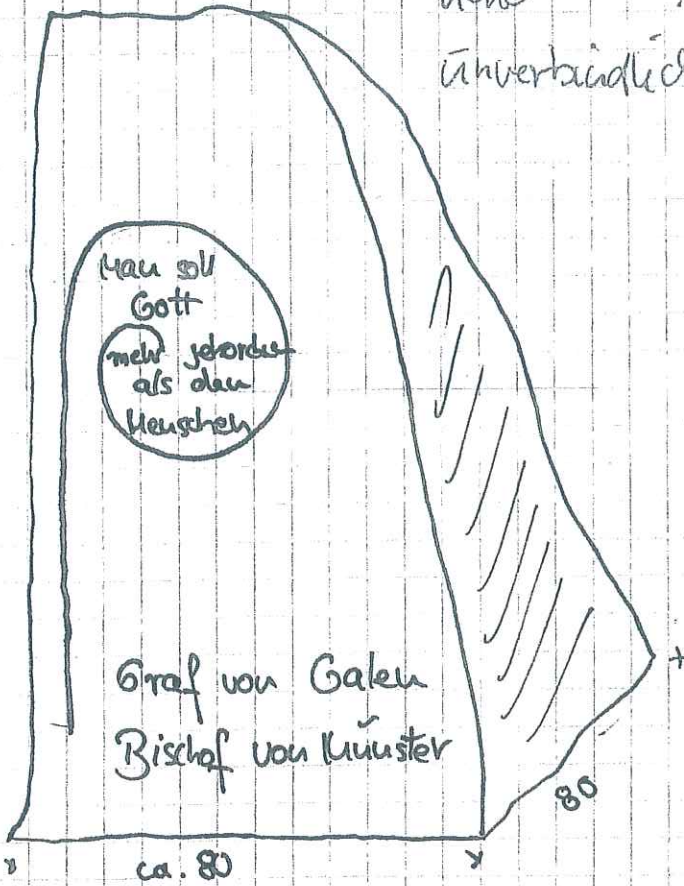 unverbindlich
Man soll
Gott
mehr gehorchen
als den
Menschen
Graf von Galen
Bischof von Münster
80
ca. 80